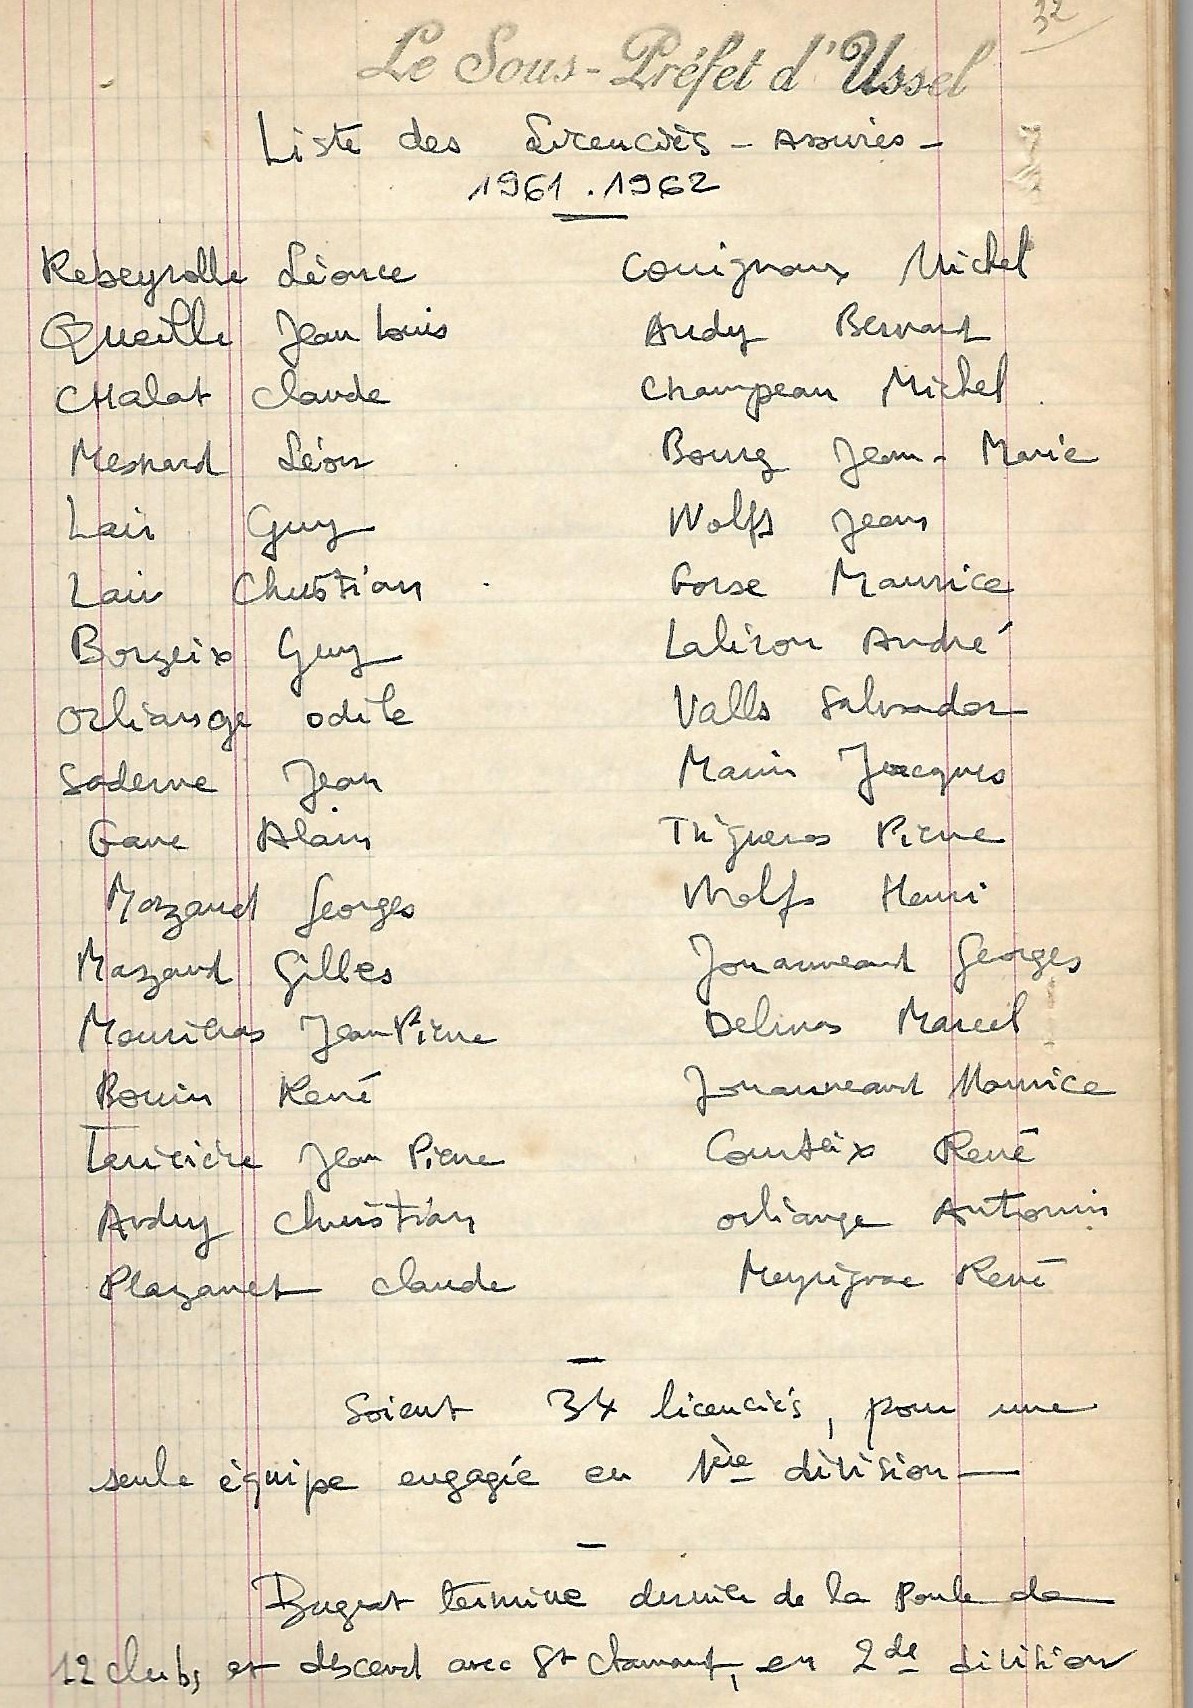 32
Le Sous-Préfet d'Ussel
Liste des Licenciés - Assurés -
1961 . 1962
Rebeyrolle Léonce Couignoux Michel
Queille Jean Louis Audy Bernard
CHalat Claude Champeau Michel
Mesnard Léon Bourg Jean - Marie
Lair Guy Wolfs Jean
Lair Christian Gorse Maurice
Borzeix Guy Laliron André
Orliange Odile Valls Salvador
Saderne Jean Marin Jacques
Gane Alain Thigueros Pierre
Mazaud Georges Wolfs Henri
Mazaud Gilles Jouanneaud Georges
Mouritras Jean Pierre Delmas Marcel
Bouin René Jouanneaud Maurice
Terricière Jean Pierre Courteix René
Audy Christian Orliange Antonin
Plazanet Claude Meyrignac René
Soient 34 licenciés, pour une
seule équipe engagée en 1ère division
Bugeat termine dernier de la Poule de
12 clubs et descend avec St Chamant, en 2de division